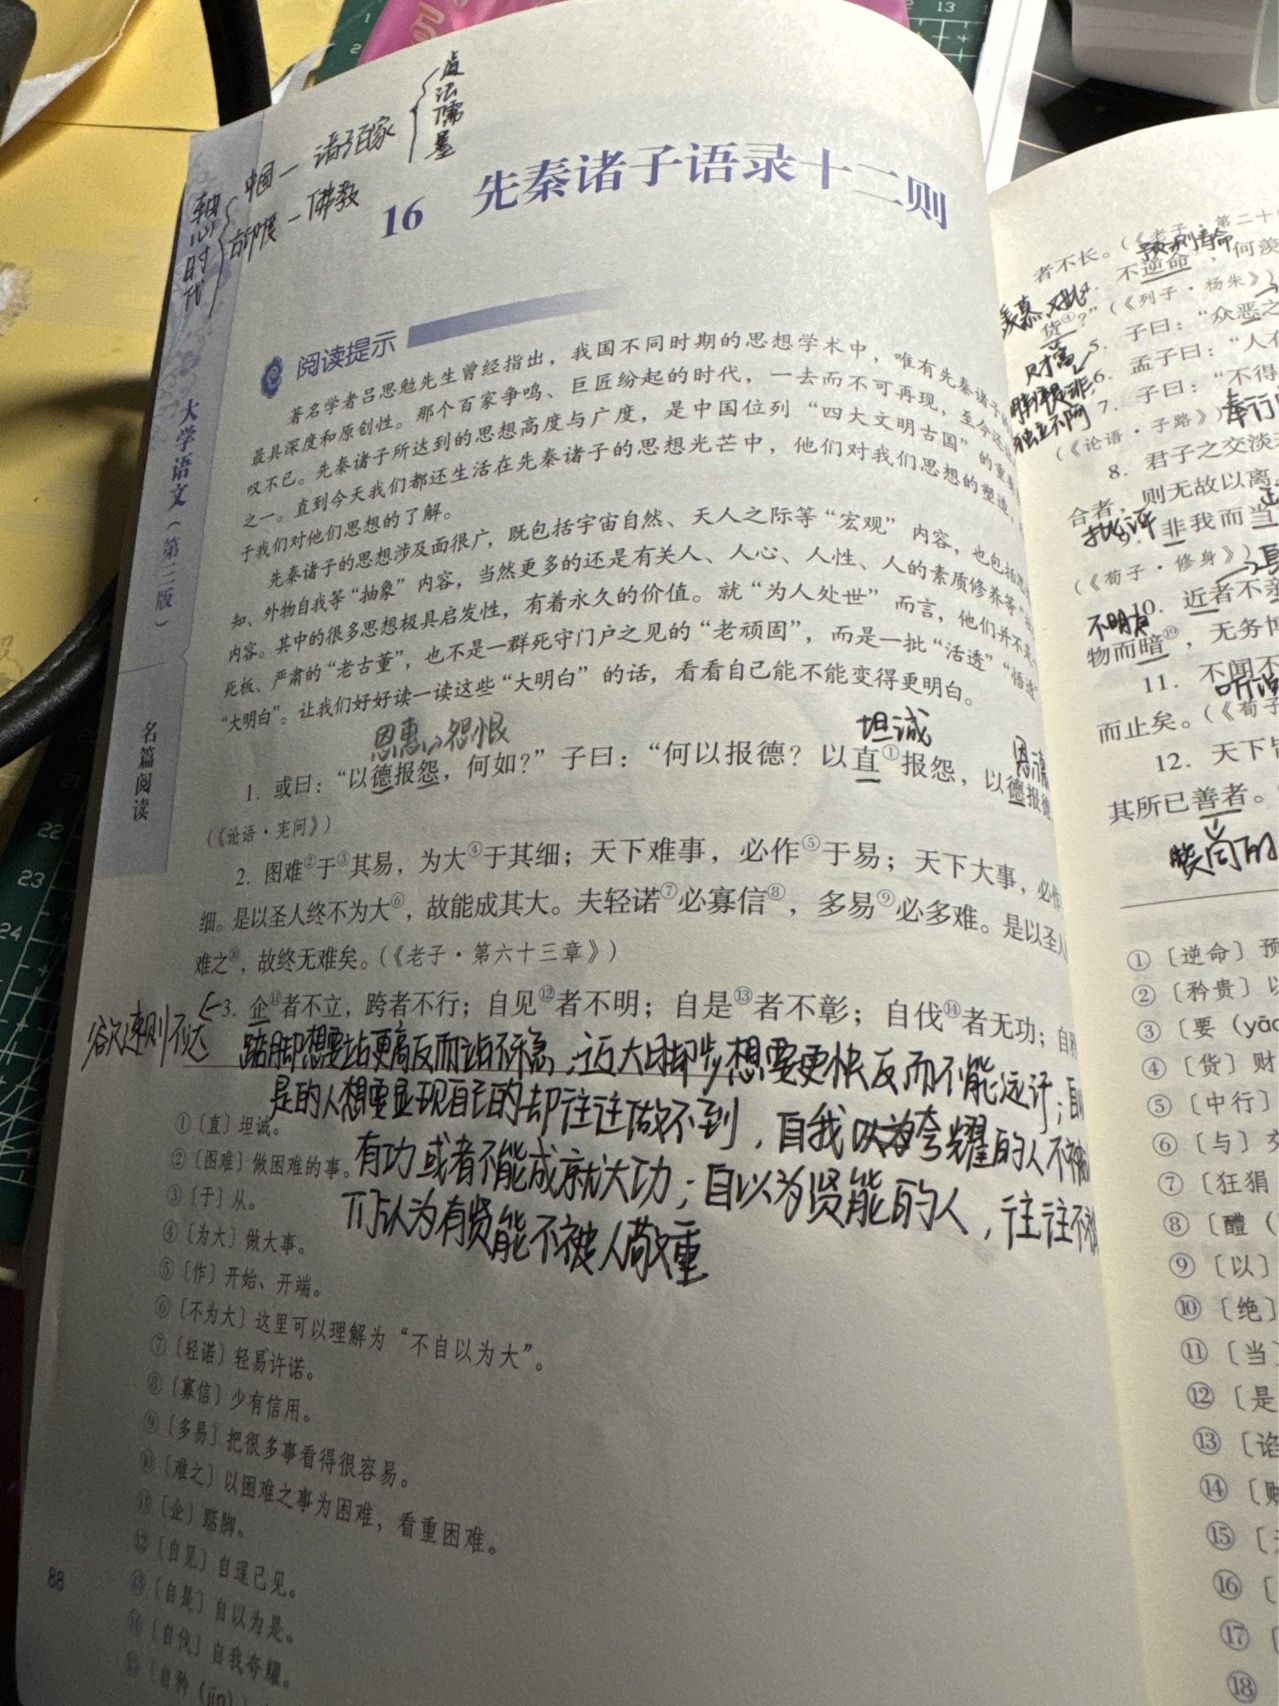 道法儒墨
轴心时代
中国一诸子百家
古印度一佛教
16 先秦诸子语录十二则
大学语文（第三版）
名篇阅读
阅读提示
著名学者吕思勉先生曾经指出，我国不同时期的思想学术中，唯有先秦诸子
最具深度和原创性。那个百家争鸣、巨匠纷起的时代，一去而不可再现，至今
叹不已。先秦诸子所达到的思想高度与广度，是中国位列“四大文明古国”的重要
之一。直到今天我们都还生活在先秦诸子的思想光芒中，他们对我们思想的塑造，
于我们对他们思想的了解。
先秦诸子的思想涉及面很广，既包括宇宙自然、天人之际等“宏观”内容，也包括
知、外物自我等“抽象”内容，当然更多的还是有关人、人心、人性、人的素质修养等
内容。其中的很多思想极具启发性，有着永久的价值。就“为人处世”而言，他们并不是
死板、严肃的“老古董”，也不是一群死守门户之见的“老顽固”，而是一批“活透”“悟透”
“大明白”。让我们好好读一读这些“大明白”的话，看看自己能不能变得更明白。
恩惠 怨恨 坦诚
1. 或曰：“以德报怨，何如？”子曰：“何以报德？以直①报怨，以德报德
（《论语·宪问》）
2. 图难②于③其易，为大④于其细；天下难事，必作⑤于易；天下大事，必作
细。是以圣人终不为大⑥，故能成其大。夫轻诺⑦必寡信⑧，多易⑨必多难。是以圣人
难之⑩，故终无难矣。（《老子·第六十三章》）
欲速则不达
3. 企⑪者不立，跨者不行；自见⑫者不明；自是⑬者不彰；自伐⑭者无功；自
踮脚想要站更高反而站不稳，迈大的脚步想要更快反而不能远行；自
是的人想要显现自己的却往往做不到，自我以为夸耀的人不被
有功或者不能成就大功；自以为贤能的人，往往不被
们认为有贤能不被人敬重
①〔直〕坦诚。
②〔图难〕做困难的事。
③〔于〕从。
④〔为大〕做大事。
⑤〔作〕开始、开端。
⑥〔不为大〕这里可以理解为“不自以为大”。
⑦〔轻诺〕轻易许诺。
⑧〔寡信〕少有信用。
⑨〔多易〕把很多事看得很容易。
⑩〔难之〕以困难之事为困难，看重困难。
⑪〔企〕踮脚。
⑫〔自见〕自逞己见。
⑬〔自是〕自以为是。
⑭〔自伐〕自我夸耀。
⑮〔自矜（jīn）
88
者不长。（《老子·第二十
预测寿命
不逆命，何羡
羡慕
（《列子·杨朱》）
货④？”
5. 子曰：“众恶之
财富
6. 孟子曰：“人不
7. 子曰：“不得
独立不阿
（《论语·子路》）
奉行
8. 君子之交淡
合者，则无故以离
批评
非我而当
（《荀子·修身》）
10. 近者不亲
不明白
物而暗⑲，无务博
11. 不闻不
听说
而止矣。（《荀子
12. 天下皆
其所已善者。
崇尚的
①〔逆命〕预
②〔矜贵〕以
③〔要（yāo
④〔货〕财
⑤〔中行〕
⑥〔与〕交
⑦〔狂狷
⑧〔醴（
⑨〔以〕
⑩〔绝〕
⑪〔当〕
⑫〔是
⑬〔谄
⑭〔
⑮〔
⑯〔
⑰
⑱